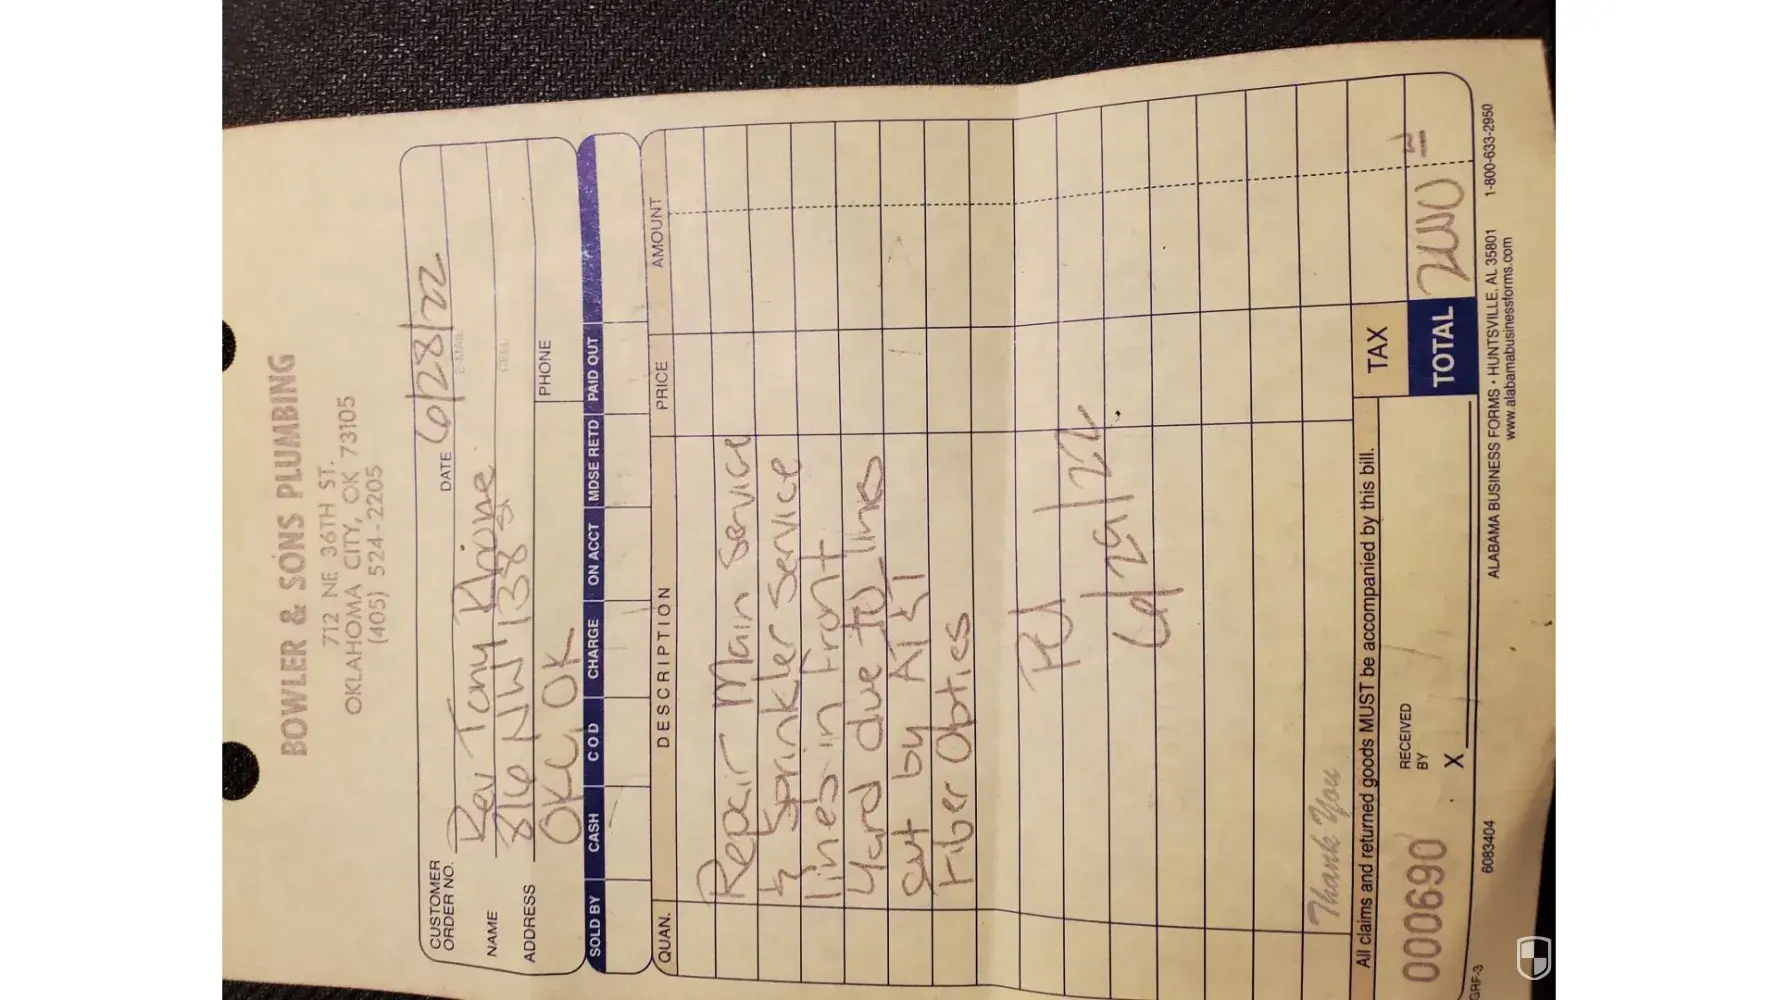 BOWLER & SONS PLUMBING
712 NE 36TH ST.
OKLAHOMA CITY, OK 73105
(405) 524-2205
CUSTOMER ORDER NO.
DATE 6/28/22
NAME Rev Tony
E-MAIL
ADDRESS 816 NW 138 St
CELL
OKC, OK
PHONE
SOLD BY CASH C O D CHARGE ON ACCT MDSE RETD PAID OUT
QUAN. DESCRIPTION PRICE AMOUNT
Repair Main Service
& Sprinkler Service
lines in Front
Yard due to lines
cut by AT&T
Fiber Optics
Pd
6/29/22
Thank You
TAX
All claims and returned goods MUST be accompanied by this bill.
TOTAL
000690
RECEIVED BY
X
GRF-3
6083404
ALABAMA BUSINESS FORMS • HUNTSVILLE, AL 35801 1-800-633-2950
www.alabamabusinessforms.com